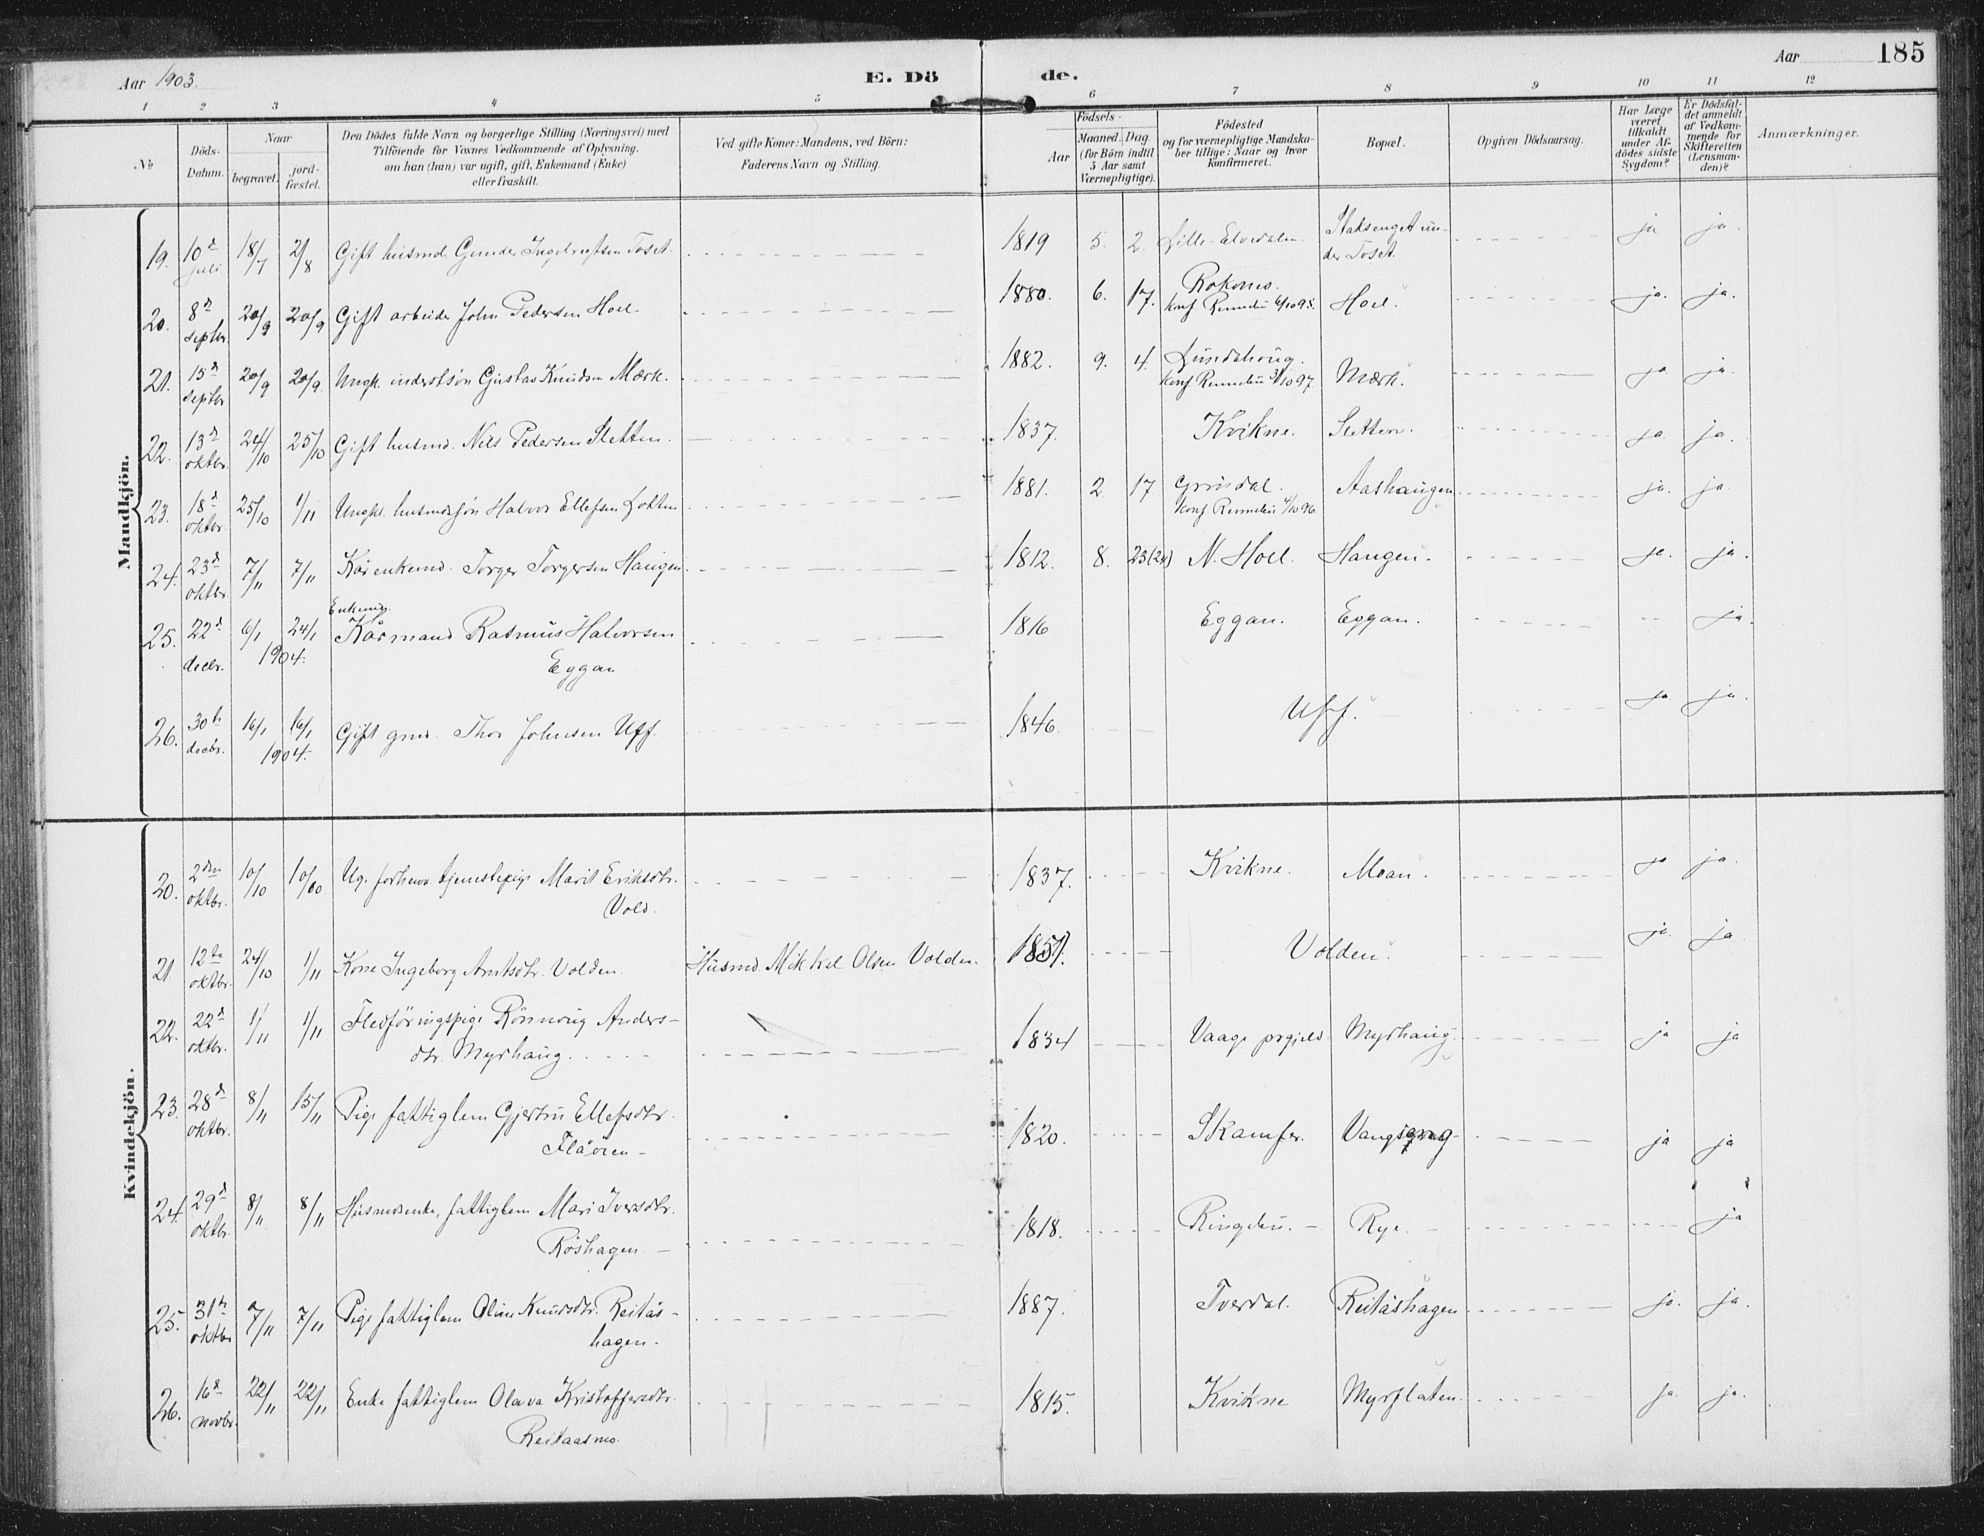 Aar 1903. E. Dö de. Aar 185
1 2 3 4 5 6 7 8 9 10 11 12
No Döds-Datum. Naar begravet. jordfæstet. Den Dödes fulde Navn og borgerlige Stilling (Næringsvei) med Tilföiende for Voxnes Vedkommende af Oplysning, om han (hun) var ugift, gift, Enkemand (Enke) eller fraskilt. Ved gifte Koner: Mandens, ved Börn: Faderens Navn og Stilling. Födsels- Aar Maaned. Dag. (for Börn indtil 5 Aar samt Værnepligtige). Födested og for værnepligtige Mandskaber tillige: Naar og hvor Konfirmeret. Bopæl. Opgiven Dödsaarsag. Har Læge været tilkaldt under Afdödes sidste Sygdom? Er Dödsfaldet anmeldt af Vedkommende for Skifteretten (Lensmanden)? Anmærkninger.
Mandkjön.
19. 10d juli 18/7 2/8 Gift husmd. Gunder Ingebrigtsen Toset. 1819 5. 2. Lille-Elvedalen Staksenget under Toset. ja ja.
20. 8d septbr. 20/9 20/9 Gift arbeider John Pedersen Hoel. 1880. 6. 17. Rokomo. konf Rennebu 6/10 95. Hoel. ja. ja.
21. 15d septbr 20/9 20/9. Ungk. inderstsön Gustav Knudsen Mærk. 1882. 9. 4. Lundahoug. konf Rennebu 3/10 97. Mærk. ja ja.
22. 13d oktbr. 24/10 25/10 Gift husmd. Nils Pedersen Sletten. 1837. Kvikne. Sletten. ja. ja.
23. 18d oktbr. 25/10 1/11 Ungk. husmdssön Halvor Ellefsen Lokten 1881. 2. 17 Grindal. konf Rennebu 4/10 96 Aashaugen ja. ja.
24. 23d oktbr. 7/11 7/11 Kårenkemd. Torger Torgersen Haugen. 1812. 8. 23(24) N. Hoel. Haugen. ja. ja.
25. 22d decbr. 6/1 24/1 1904. Enkemd. Kårmand Rasmus Halvorsen Eggan 1816 Eggan. Eggan. ja.
26. 30te decbr. 16/1 16/1 1904. Gift gmd. Thor Johnsen Uff. 1846. Uff. ja ja.
Kvindekjön.
20. 2den oktbr. 10/10 10/10 Ug. forhenv. tjenestepige Marit Eriksdtr. Vold. 1837. Kvikne. Moan. ja ja.
21. 12te oktbr. 24/10 1/11 Kone Ingeborg Arntsdtr. Volden. Husmd. Mikkel Olsen Volden. 1851. Volden. ja. ja
22. 22d oktbr. 1/11 1/11 Fledföringspige Rönnoug Andersdtr. Myrhaug. 1834 Vaage prgjeld Myrhaug. ja ja
23. 28d oktbr. 8/11 15/11 Pige fattiglem Gjertru Ellefsdtr. Flåören 1820. Skamfer. Vangseng ja ja
24. 29d oktbr. 8/11 8/11 Husmdsenke, fattiglem Mari Iversdtr. Röshagen. 1818. Ringebu. Rye. ja
25. 31te oktbr 7/11 7/11 Pige fattiglem Oline Knudsdtr. Reitåshagen. 1887. Tverdal. Reitåshagen ja. ja.
26. 16d novbr. 22/11 22/11 Enke fattiglem Olava Kristoffersdtr. Reitaasmo. 1815. Kvikne Myrflaten. ja. ja.